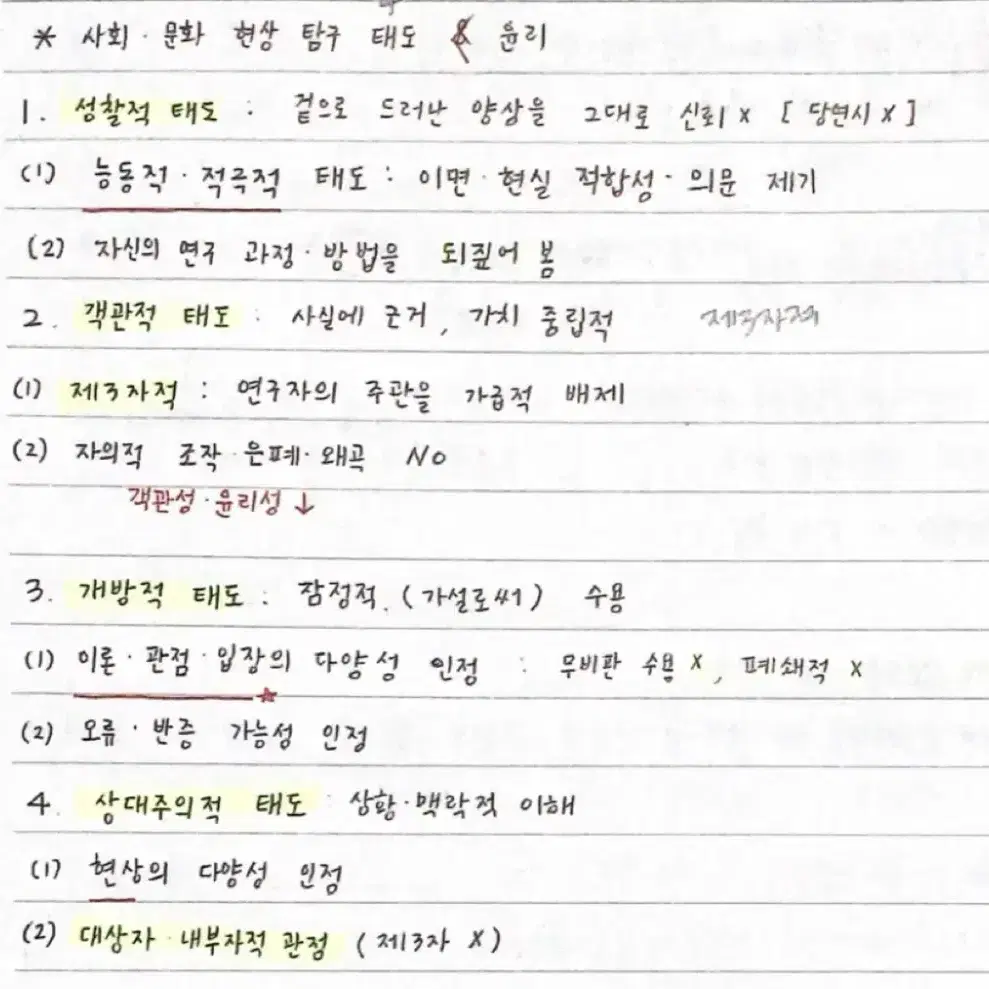 * 사회·문화 현상 탐구 태도 & 윤리
1. 성찰적 태도 : 겉으로 드러난 양상을 그대로 신뢰 x [당연시 x]
(1) 능동적·적극적 태도 : 이면·현실 적합성·의문 제기
(2) 자신의 연구 과정·방법을 되짚어 봄
2. 객관적 태도 : 사실에 근거, 가치 중립적 제3자적
(1) 제3자적 : 연구자의 주관을 가급적 배제
(2) 자의적 조작·은폐·왜곡 No
객관성·윤리성 ↓
3. 개방적 태도 : 잠정적 (가설로써) 수용
(1) 이론·관점·입장의 다양성 인정 : 무비판 수용 x, 폐쇄적 x
(2) 오류·반증 가능성 인정
4. 상대주의적 태도 : 상황·맥락적 이해
(1) 현상의 다양성 인정
(2) 대상자·내부자적 관점 (제3자 X)